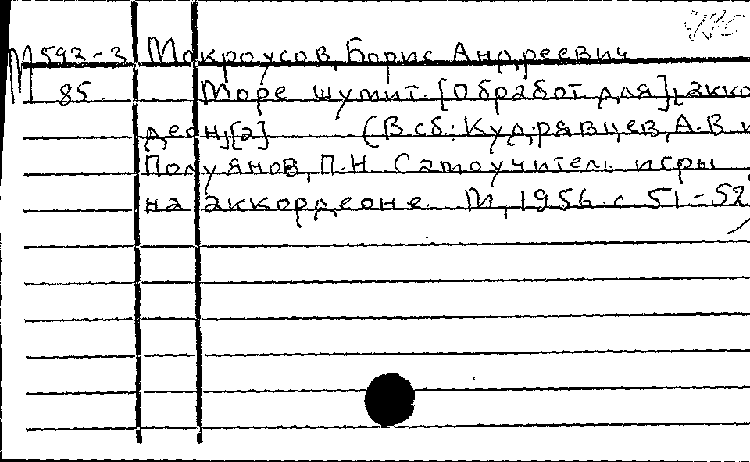 М 593-3 Мокроусов, Борис Андреевич
85 Море шумит. [Обработ. для] акко
деон, [а] (В сб.: Кудрявцев, А.В. и
Полуянов, П.Н. Самоучитель игры
на аккордеоне. М, 1956. с 51-52